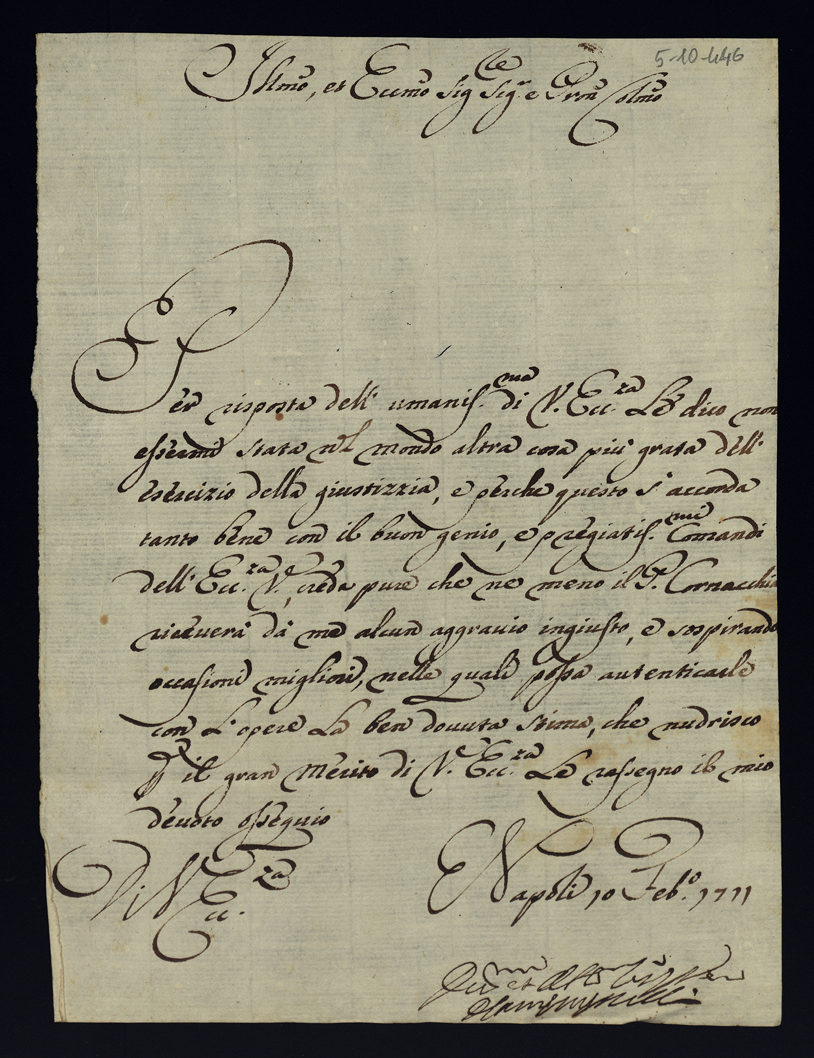 5-10-446
Illmo, et Eccmo Sig Sig.re e Pron Colmo
Per risposta dell' umaniss.ma di V. Ecc.za Le dico non
essermi stata nel mondo altra cosa più grata dell'
esercizio della giustizzia, e perche questo s' accorda
tanto bene con il buon genio, e pregiatiss.mi Comandi
dell' Ecc.za V.e, creda pure che ne meno il P. Cornacchia
riceverà da me alcun aggravio ingiusto, e sospirando
occasioni migliori, nelle quali possa autenticarle
con l'opere La ben dovuta stima, che nudrisco
p il gran Merito di V. Ecc.za Le rassegno il mio
devoto ossequio
Di V Ecc.za
Napoli 10 Feb.o 1711